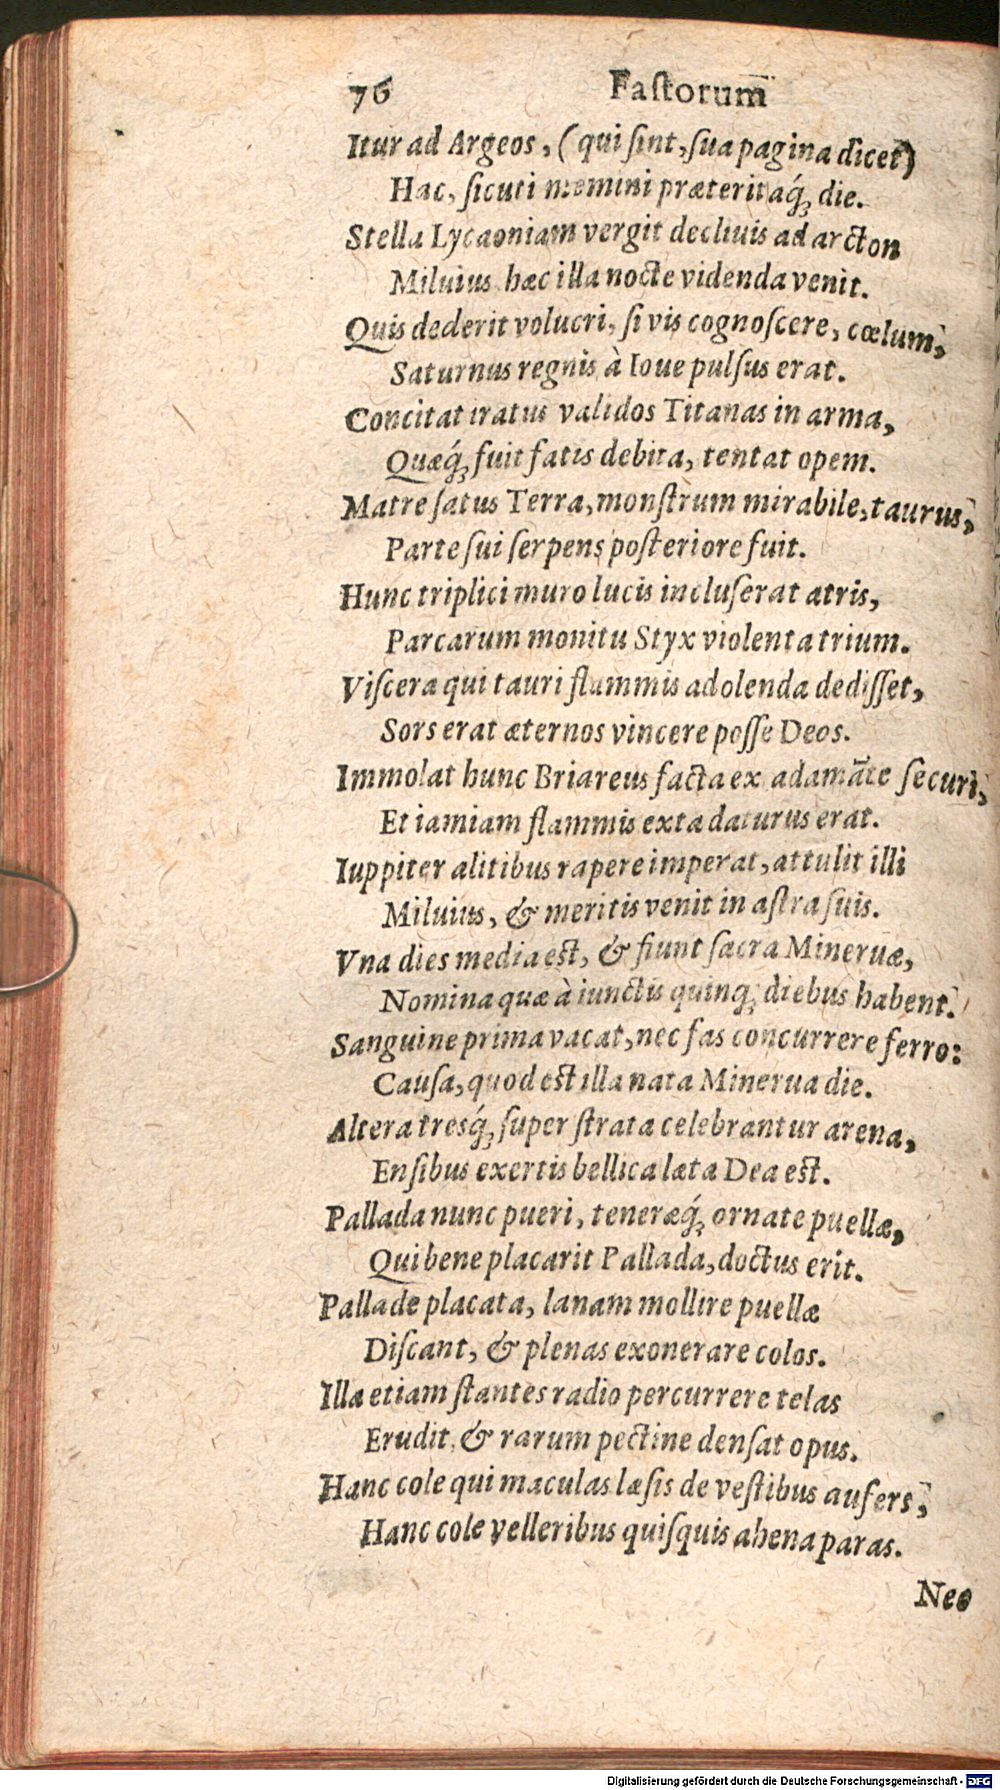 76 Faſtorum
Itur ad Argeos, (qui ſint, ſua pagina dicet)
Hac, ſicuti memini præteritaq́; die.
Stella Lycaoniam vergit decliuis ad arcton
Miluius. hæc illa nocte videnda venit.
Quis dederit volucri, ſi vis cognoſcere, cœlum,
Saturnus regnis à Ioue pulſus erat.
Concitat iratus validos Titanas in arma,
Quæq́; fuit fatis debita, tentat opem.
Matre ſatus Terra, monſtrum mirabile, taurus,
Parte ſui ſerpens poſteriore fuit.
Hunc triplici muro lucis incluſerat atris,
Parcarum monitu Styx violenta trium.
Viſcera qui tauri flammis adolenda dediſſet,
Sors erat æternos vincere poſſe Deos.
Immolat hunc Briareus facta ex adamãte ſecuri,
Et iamiam flammis exta daturus erat.
Iuppiter alitibus rapere imperat, attulit illi
Miluius, & meritis venit in aſtra ſuis.
Vna dies media eſt, & fiunt ſacra Mineruæ,
Nomina quæ à iunctis quinq; diebus habent.
Sanguine prima vacat, nec fas concurrere ferro:
Cauſa, quod eſt illa nata Minerua die.
Altera tresq́; ſuper ſtrata celebrantur arena,
Enſibus exertis bellica læta Dea eſt.
Pallada nunc pueri, teneræq́; ornate puellæ,
Qui bene placarit Pallada, doctus erit.
Pallade placata, lanam mollire puellæ
Diſcant, & plenas exonerare colos.
Illa etiam ſtantes radio percurrere telas
Erudit, & rarum pectine denſat opus.
Hanc cole qui maculas læſis de veſtibus aufers,
Hanc cole velleribus quiſquis ahena paras.
Neo
Digitalisierung gefördert durch die Deutsche Forschungsgemeinschaft - DFG